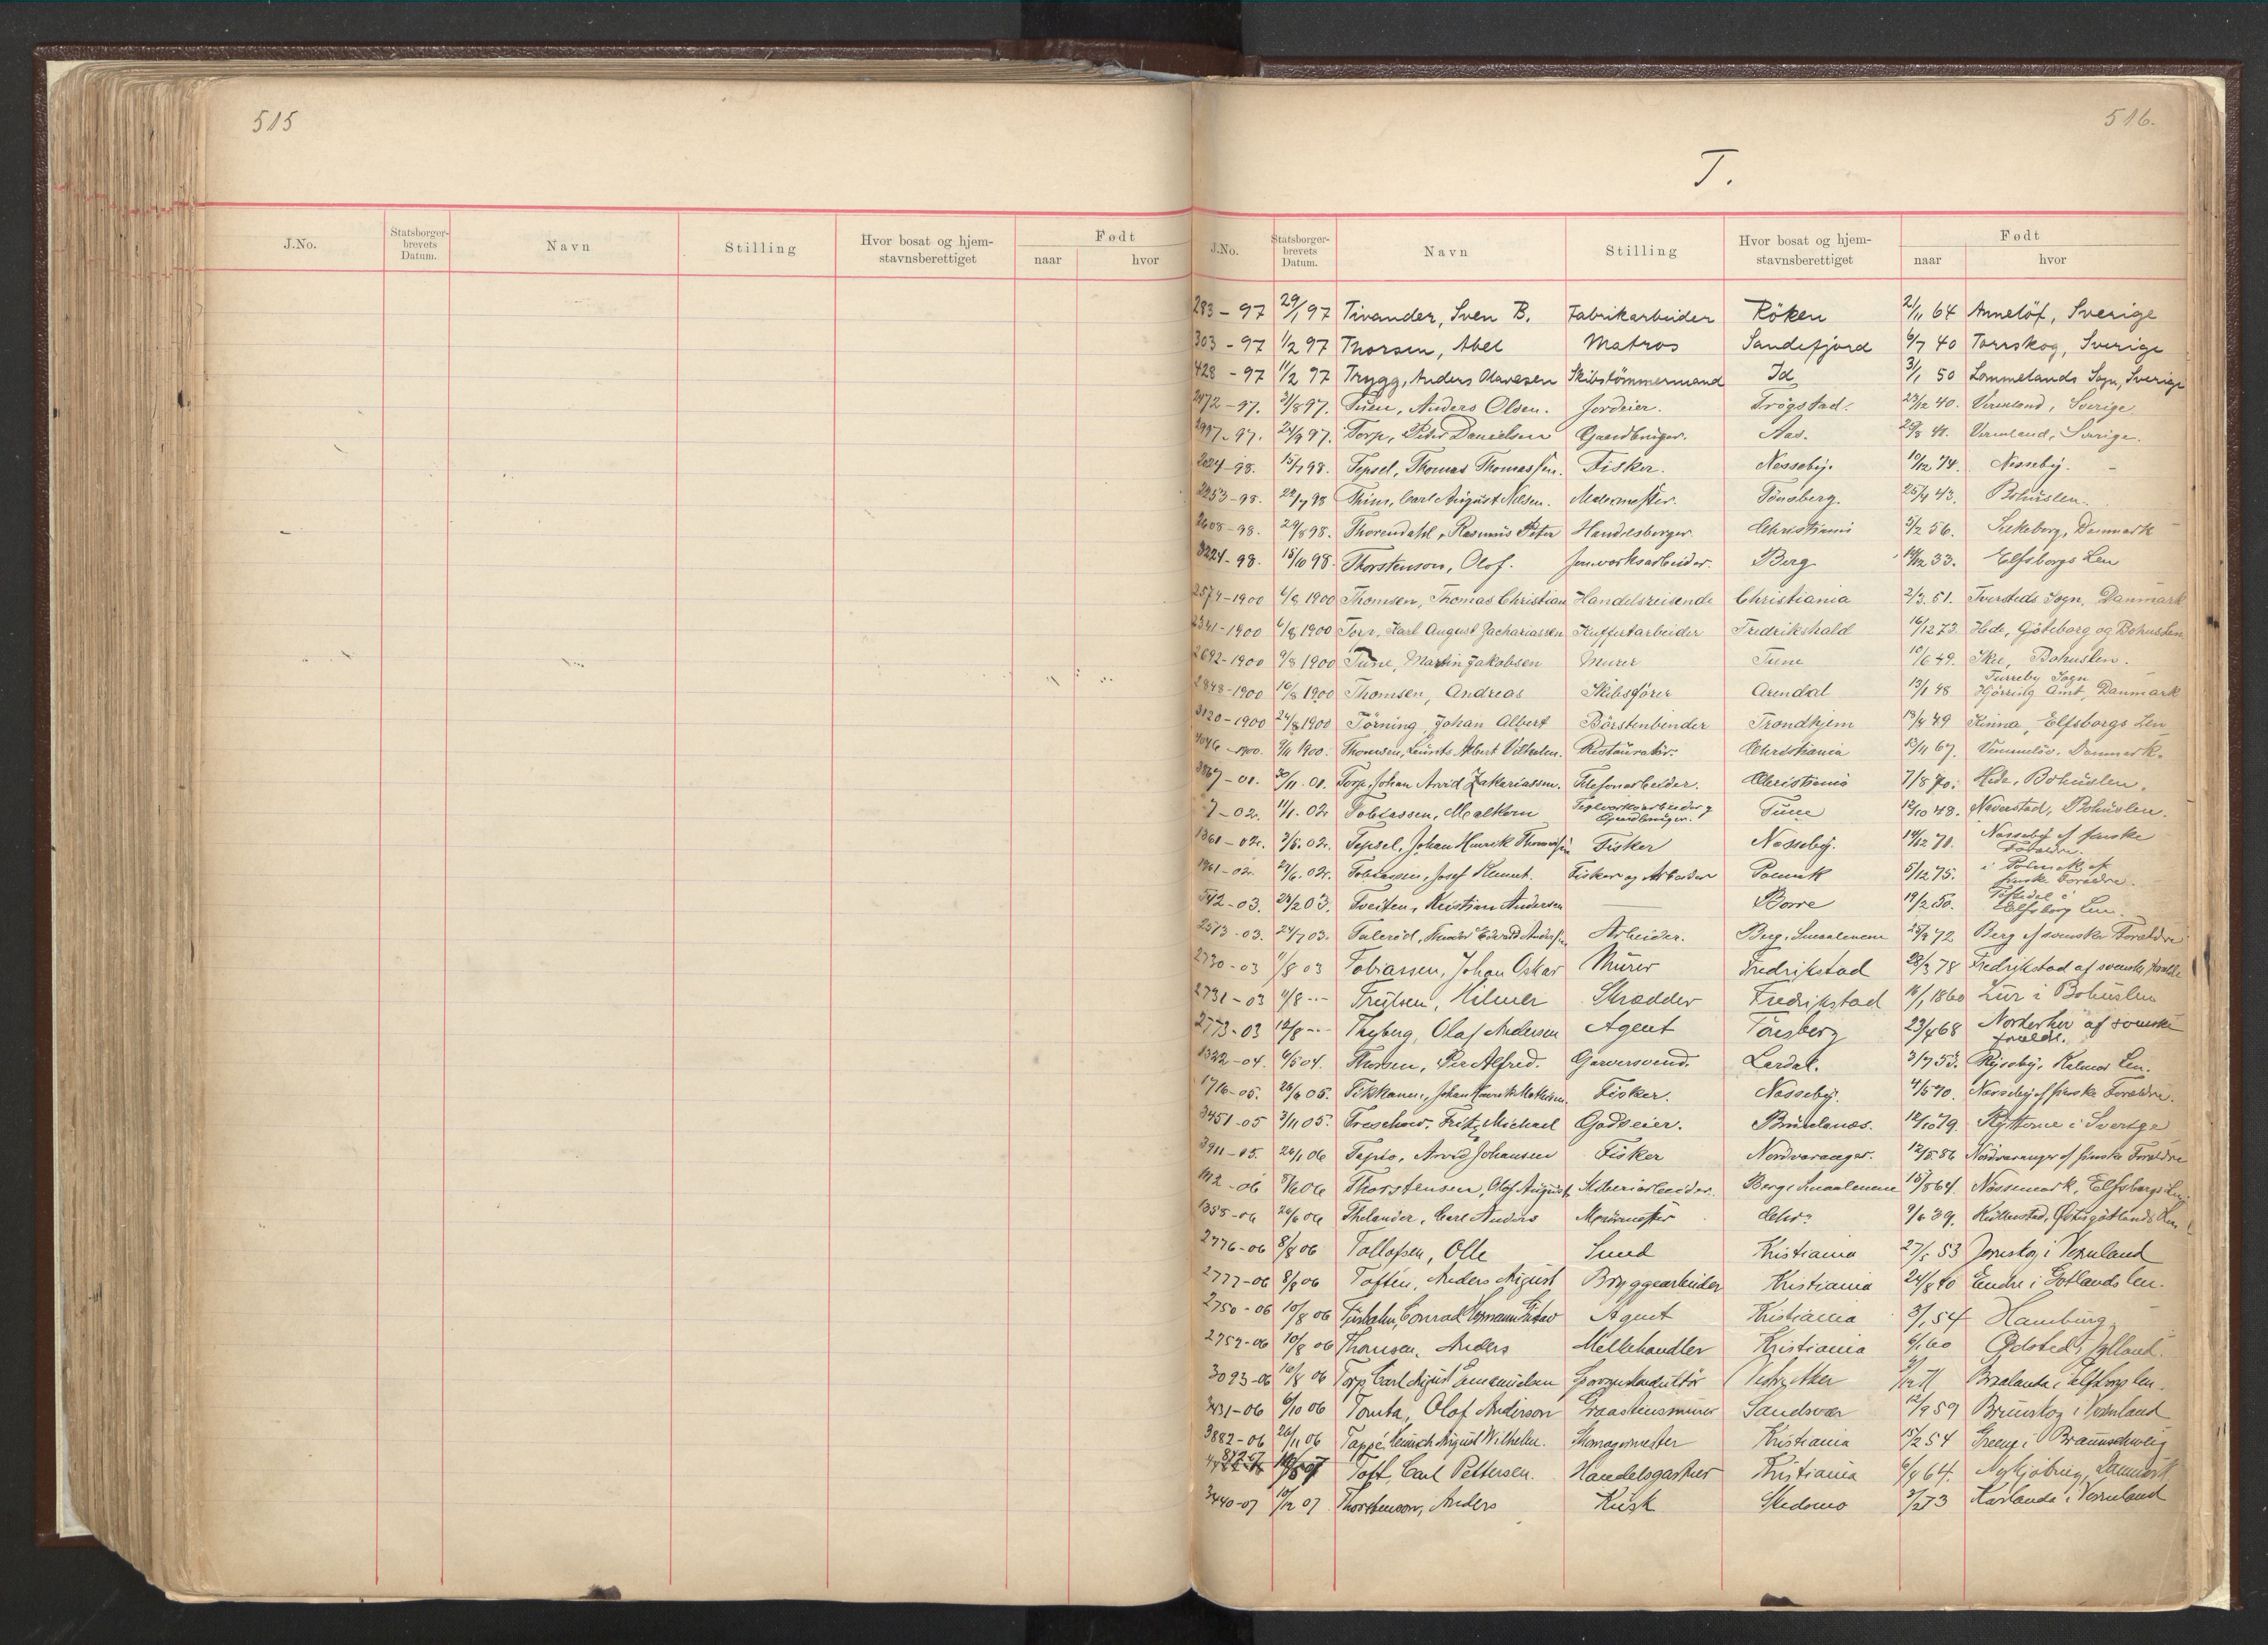 515
J.No.
Statsborger-
brevets
Datum.
Navn
Stilling
Hvor bosat og hjem-
stavnsberettiget
Født
naar
hvor
516.
T.
J.No.
Statsborger-
brevets
Datum.
Navn
Stilling
Hvor bosat og hjem-
stavnsberettiget
Født
naar
hvor
283-97 29/1 97 Tivander, Sven B. Fabrikarbeider Röken 2/11 64 Annelöf, Sverige
303-97 1/2 97 Thorsen, Abel Matros Sandefjord 6/7 40 Torrskog, Sverige
428-97 11/2 97 Trygg, Anders Olavesen Skibstömmermand Id 3/1 50 Lommelands Sogn, Sverige
31/8 97. Tuen, Anders Olsen. Jordeier. Trögstad. 23/12 40. Vermland, Sverige.
24/9 97. Torp, Peter Danielsen Gaardbruger. Aas. Vermland, Sverige.
2024-98. 15/7 98. Tepsel, Thomas Thomassen. Fisker. Nesseby. 10/12 74. Nesseby.
2253-98. 22/7 98 Carl August Nilsen. Tönsberg. 25/4 43. Bohuslen
2608-98. 29/8 98. Thorendahl, Rasmus Peter Handelsborger. Christiania 5/2 56. Danmark
3224-98. 15/10 98. Thorstenson, Olof. Jernverksarbeider. Berg 14/12 33. Elfsborgs Len
2574-1900 6/8 1900 Thomsen, Thomas Christian Handelsreisende Christiania 2/3. 51. Tversteds Sogn, Danmark
2341-1900 6/8 1900 Torp, Karl August Zachariassen Kuffertarbeider Fredrikshald 16/12 73. Hede, Göteborg og Bohuslen
2692-1900 9/8 1900 Tune, Martin Jakobsen Murer Tune 10/6 49. Skee, Bohuslen.
2848-1900 16/8 1900 Thomsen, Andreas Skibsförer Arendal 13/1 48 Furreby Sogn
Hjörring Amt, Danmark
3120-1900 24/8 1900 Törning, Johan Albert Börstenbinder Trondhjem 13/4 49 Kinna, Elfsborgs Len
9/11 1900. Thomsen, Laurits Albert Vilhelm. Restauratör. Christiania 13/11 67. Danmark.
3867-01. 30/11. 01. Torp, Johan Arvid Zakariassen. Telefonarbeider. Christiania 7/8 70. Hede, Bohuslen.
7-02. 11/1. 02. Tobiassen, Malkom Teglverksarbeider og
Gaardbruger. Tune 12/10 48. Naverstad, Bohuslen.
1361-02. 3/5. 02. Tepsel, Johan Henrik Thomassen Fisker Nesseby. 14/12 71. Nesseby af finske
Forældre.
1961-02. 24/6. 02. Tobiassen, Josef Klemet. Fisker og Arbeider Polmak 5/12 75. i Polmak af
finske Forældre.
542-03. 24/2 03. Tveiten, Kristian Andersen Borre 19/2 50. Tösse
Elfsborg Len.
2573-03. 24/7 03. Arbeider. Berg, Smaalenene 25/9 72 Berg af svenske Forældre
2730-03 11/8 03 Tobiassen, Johan Oskar Murer Fredrikstad 28/3 78 Fredrikstad af svenske Forældre
2731-03 11/8 -- Trulsen, Hilmer Skrædder Fredrikstad 16/1 1860 Lur i Bohuslen
2773-03 12/8 -- Thyberg, Olaf Andersen Agent Tönsberg 23/4 68 Norderhov af svenske
foreldr.
1322-04. 6/5 04. Per Alfred. Garversvend. Lardal. 3/7 53. Kalmar Len.
1716-05. 26/6 05. Tikkanen, Johan Henrik Mathisen. Fisker. Nesseby. 4/5 70. Nesseby af finske Forældre.
3451-05 3/11 05. Treschow, Fritz Michael Godseier. Brunlanes. 12/10 79. Ryttorne i Sverige
3911-05. 26/1 06 Tapio, Arvid Johansen Fisker Nordvaranger. 12/5 86 Nordvaranger af finske Forældre
1112-06 8/6 06 Thorstensen, Olof August Berg i Smaalenene 15/8 64. Nössemark, Elfsborgs Len
1355-06 26/6 06 Thelander, Carl Anders Chra. 9/6 39. Kullerstad, Östergötlands Len
2776-06 8/8 06 Tollofsen, Olle Smed Kristiania 27/5 53 Jernskog i Vermland
2777-06 8/8 06 Toftén, Anders August Bryggearbeider Kristiania 24/8 40 Endre i Gotlands len.
2750-06 10/8 06 Conrad Hermann Gustav Agent Kristiania 3/1 54 Hamburg.
2757-06 10/8 06 Thomsen, Anders Melkehandler Kristiania 6/1 60 Ödsted i Jylland.
3093-06 16/8 06 Torp, Carl August Emanuelsen Sporvognskonduktör Vestre Aker Brålanda, Elfsborgs len.
3431-06 6/10 06 Tomta, Olof Anderson Graastensmurer Sandsvær 12/9 59 Brunskog i Vermland
3882-06 26/11 06 Tappe, Heinrich August Wilhelm. Skomagermester Kristiania 15/2 54 Greene i Braunschweig
Toft, Carl Pettersen. Handelsgartner Kristiania 6/4 64. Nykjöbing, Danmark
3440-07 10/12 07 Thorstensen, Anders Kusk Skedsmo 2/2 73 Karlanda i Vermland